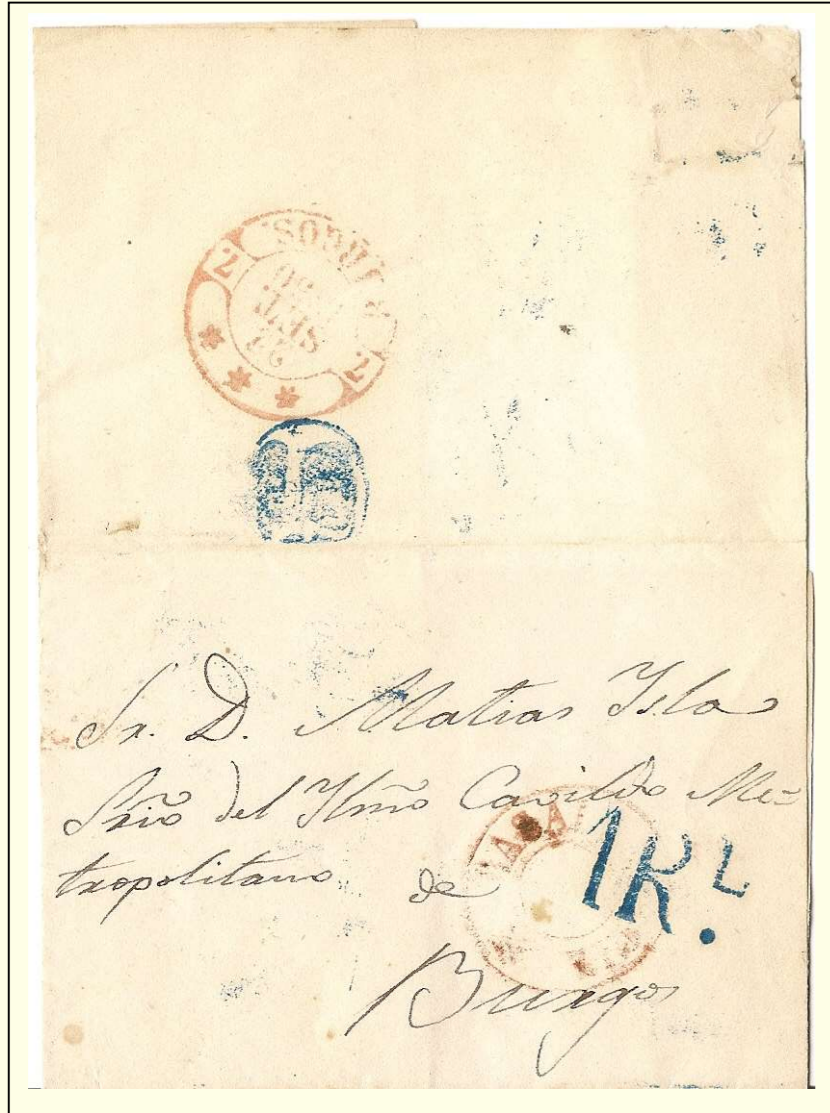 BURGOS.
2 2
22
SETE
1850
Sr. D. Matias Isla
Srio del Ylmo Cavildo Me=
tropolitano de
Burgos
1R.L